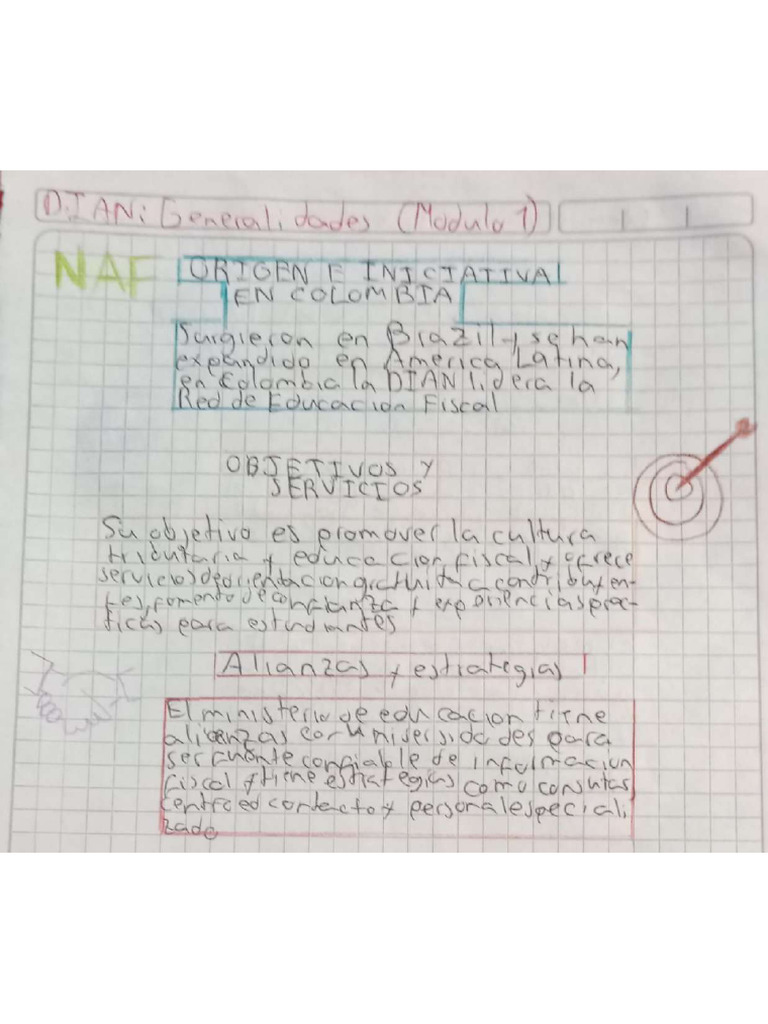 DIAN: Generalidades (Modulo 1)
NAF
ORIGEN E INICIATIVA
EN COLOMBIA
Surgieron en Brazil y se han
expandido en America Latina,
en Colombia la DIAN lidera la
Red de Educacion Fiscal
OBJETIVOS Y
SERVICIOS
Su objetivo es promover la cultura
tributaria y educacion fiscal y ofrece
servicios de orientacion gratuita a contribuyen-
tes, fomento de confianza y experiencias prac-
ticas para estudiantes
Alianzas y estrategias
El ministerio de educacion tiene
alianzas con universidades para
ser fuente confiable de informacion
fiscal y tiene estrategias como consultas
centro ed contacto y personal especiali
zado